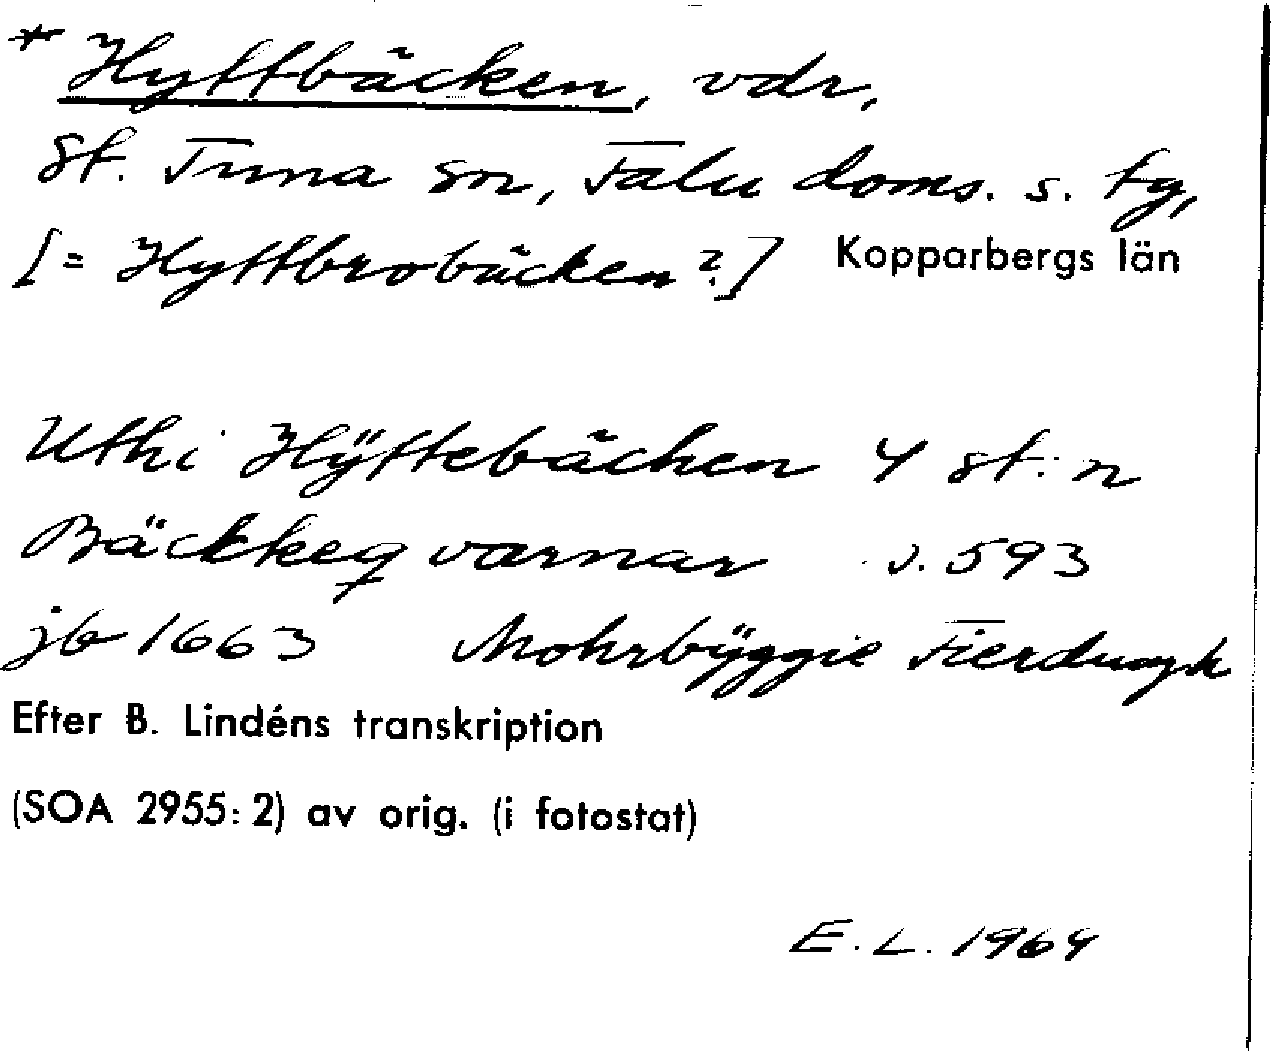 * Hyttbäcken, vdr,
St. Tuna sn, Falu doms. s. tg,
[= Hyttbrobäcken ?] Kopparbergs län
Uthi Hÿttebäcken 4 st:n
Bäckkeqvarnar s. 593
jb 1663 Mohrbÿggie Fierdungh
Efter B. Lindéns transkription
(SOA 2955:2) av orig. (i fotostat)
E.L. 1964